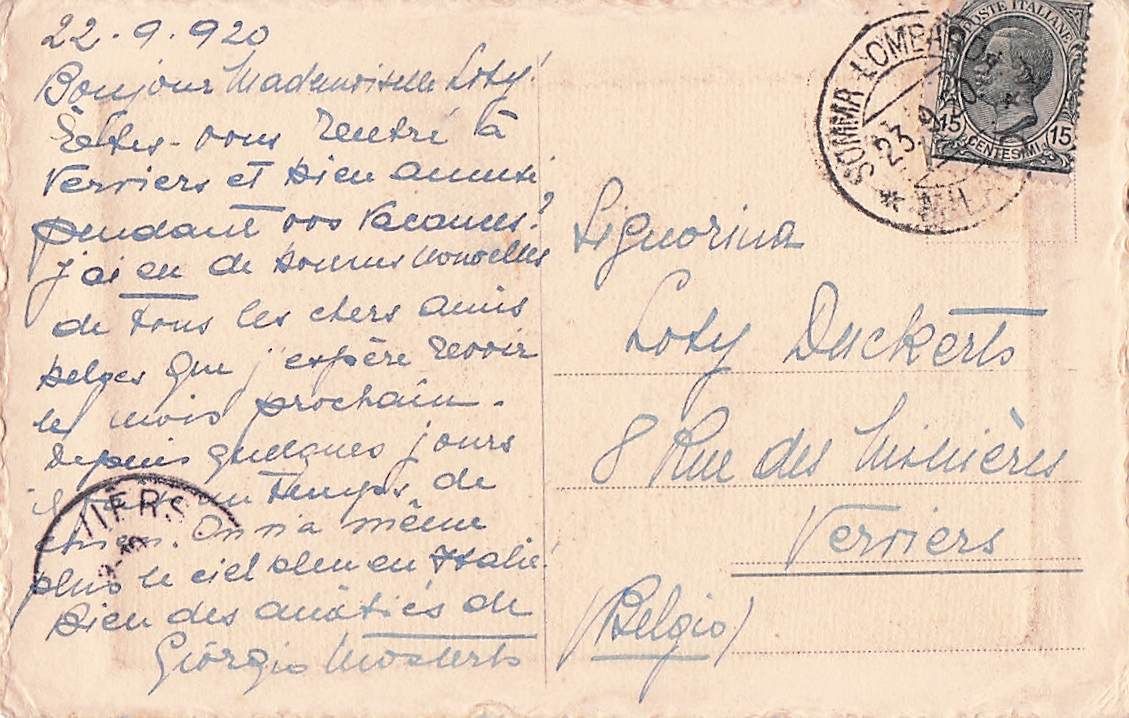 22.9.920
Bonjour Mademoiselle Loty!
Êtes-vous rentré à
Verviers et bien amusé
pendant vos vacances?
j'ai eu de bonnes nouvelles
de tous les chers amis
belges que j'espère revoir
le mois prochain.
Depuis quelques jours
un temps de
chien. On n'a même
plus le ciel bleu en Italie!
Bien des amitiés de
Giorgio Mosterts
VIERS
POSTE ITALIANE
15 15
CENTESIMI
SOMMA LOMBARDO
23.9.20
* MILANO
Signorina
Loty Duckerts
8 Rue des Minières
Verviers
(Belgio)